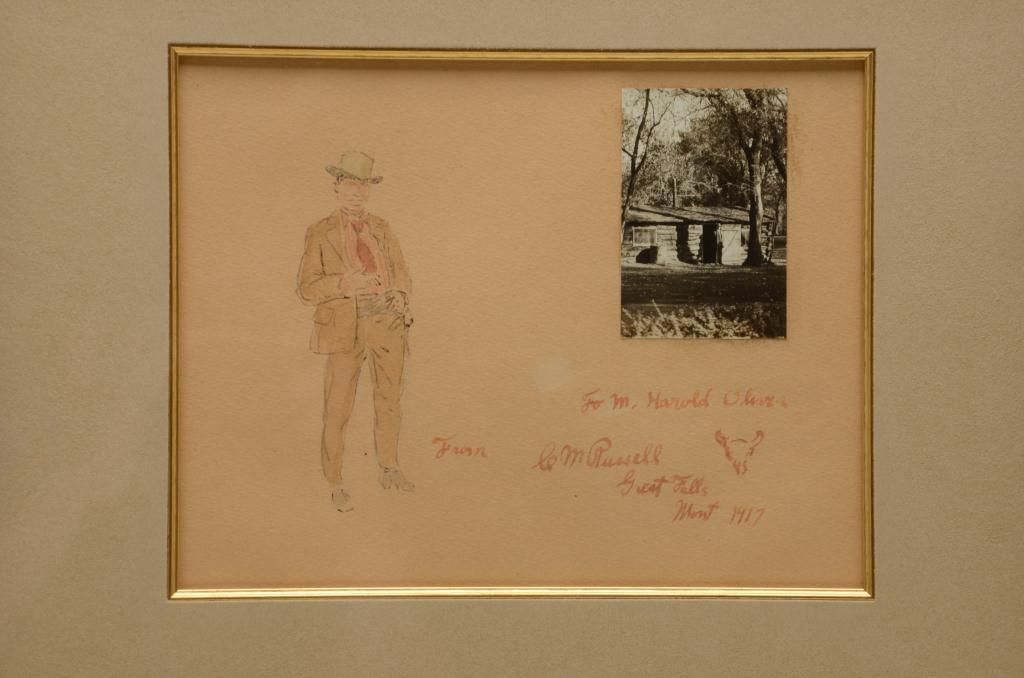 To M. Harold Oliver
From C M Russell
Great Falls
Mont 1917